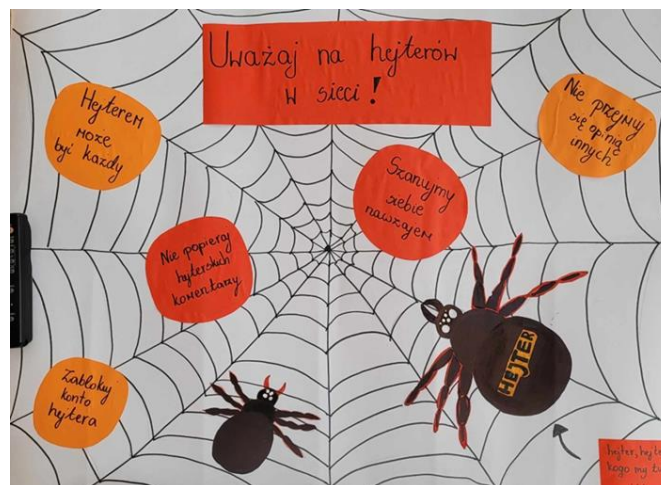 Uważaj na hejterów
w sieci!
Hejterem
może
być każdy
Nie przejmuj
się opinią
innych
Szanujmy
siebie
nawzajem
Nie popieraj
hejterskich
komentarzy
HEJTER
Zablokuj
konto
hejtera
hejter,
kogo my